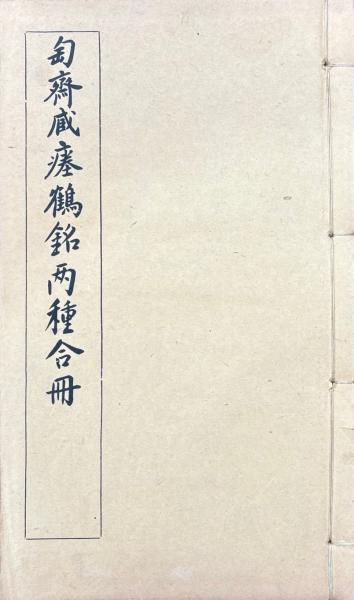 匋齋臧瘞鶴銘两種合冊